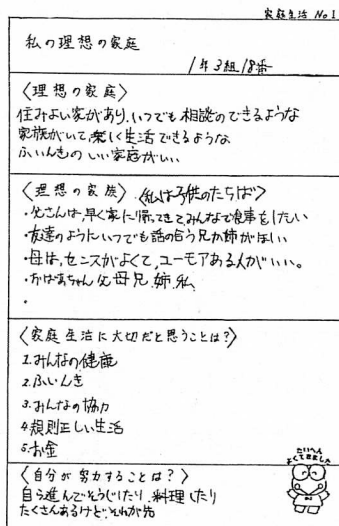 家庭生活 No 1
私の理想の家庭
1年3組18番
〈理想の家庭〉
住みよい家があり、いつでも相談のできるような
家族がいて、楽しく生活できるような
ふいんきの いい家庭がいい
〈理想の家族〉〈私は子供のたちば〉
・父さんは、早く家に帰ってきてみんなで食事をしたい
・友達のようにいつでも話の合う兄か姉がほしい
・母は、センスがよくて、ユーモアある人がいい。
・おばあちゃん 父 母 兄 姉 私
〈家庭生活に大切だと思うことは?〉
1.みんなの健康
2.ふいんき
3.みんなの協力
4.規則正しい生活
5.お金
〈自分が努力することは?〉
自ら進んでそうじしたり、料理したり
たくさんあるけど、それが先
たいへん
よくできました